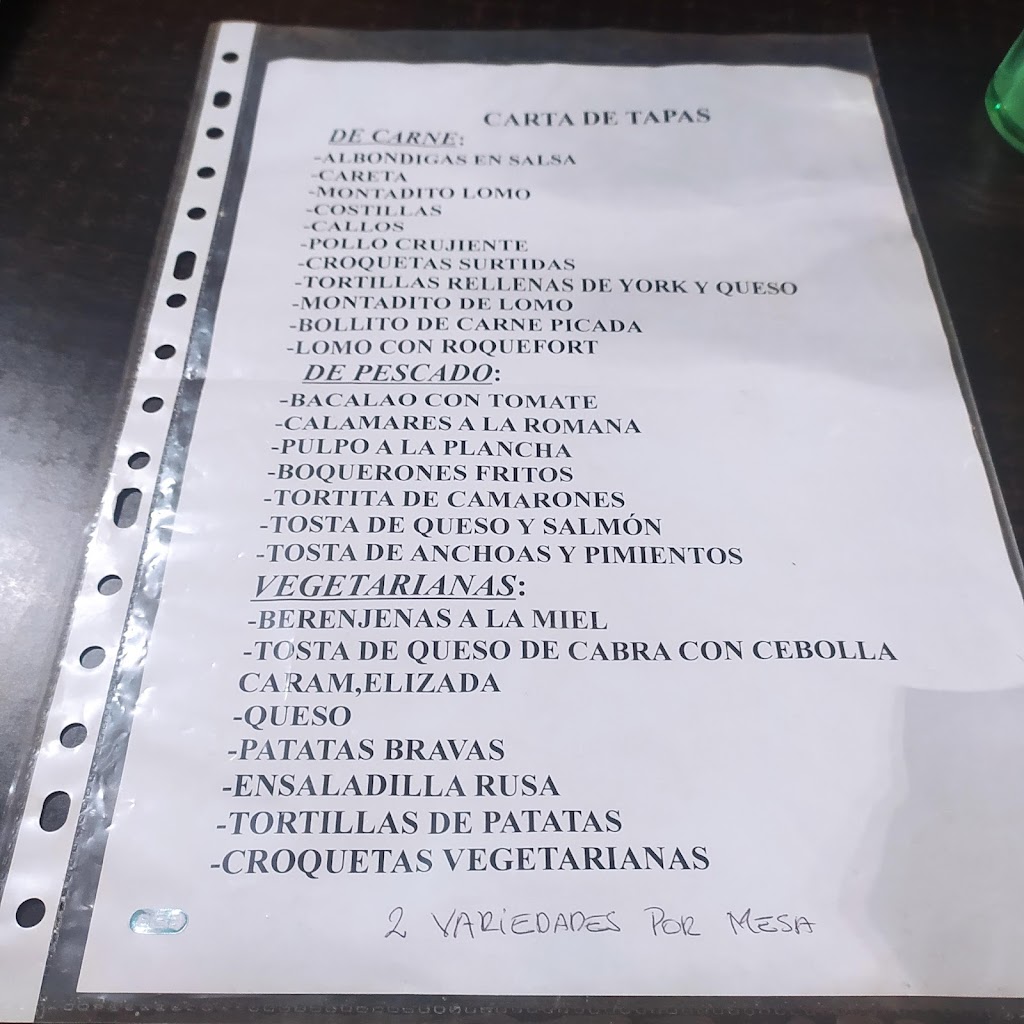 CARTA DE TAPAS
DE CARNE:
-ALBONDIGAS EN SALSA
-CARETA
-MONTADITO LOMO
-COSTILLAS
-CALLOS
-POLLO CRUJIENTE
-CROQUETAS SURTIDAS
-TORTILLAS RELLENAS DE YORK Y QUESO
-MONTADITO DE LOMO
-BOLLITO DE CARNE PICADA
-LOMO CON ROQUEFORT
DE PESCADO:
-BACALAO CON TOMATE
-CALAMARES A LA ROMANA
-PULPO A LA PLANCHA
-BOQUERONES FRITOS
-TORTITA DE CAMARONES
-TOSTA DE QUESO Y SALMÓN
-TOSTA DE ANCHOAS Y PIMIENTOS
VEGETARIANAS:
-BERENJENAS A LA MIEL
-TOSTA DE QUESO DE CABRA CON CEBOLLA
CARAM,ELIZADA
-QUESO
-PATATAS BRAVAS
-ENSALADILLA RUSA
-TORTILLAS DE PATATAS
-CROQUETAS VEGETARIANAS
2 VARIEDADES POR MESA